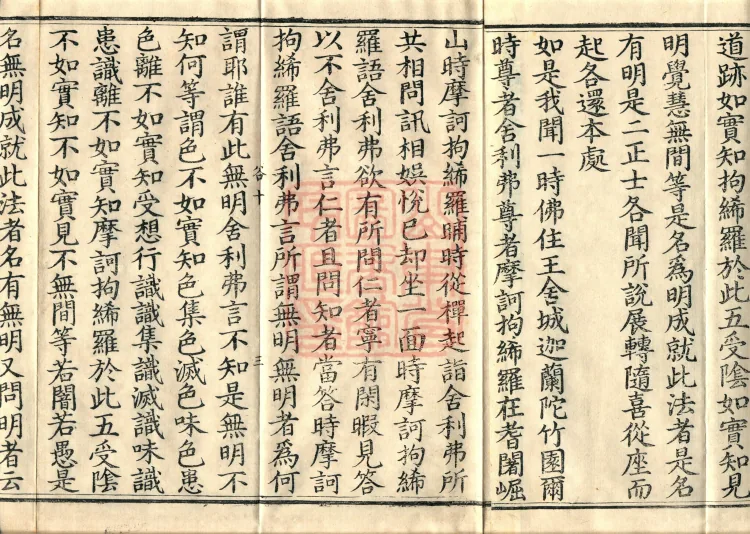 道跡如實知拘絺羅於此五受陰如實知見
明覺慧無間等是名爲明成就此法者是名
有明是二正士各聞所說展轉隨喜從座而
起各還本處
如是我聞一時佛住王舍城迦蘭陀竹園爾
時尊者舍利弗尊者摩訶拘絺羅在耆闍崛
山時摩訶拘絺羅晡時從禪起詣舍利弗所
共相問訊相娛悅已却坐一面時摩訶拘絺
羅語舍利弗欲有所問仁者寧有閑暇見答
以不舍利弗言仁者且問知者當答時摩訶
拘絺羅語舍利弗言所謂無明無明者爲何
谷十 三
謂耶誰有此無明舍利弗言不知是無明不
知何等謂色不如實知色集色滅色味色患
色離不如實知受想行識識集識滅識味識
患識離不如實知摩訶拘絺羅於此五受陰
不如實知不如實見不無間等若闇若愚是
名無明成就此法者名有無明又問明者云